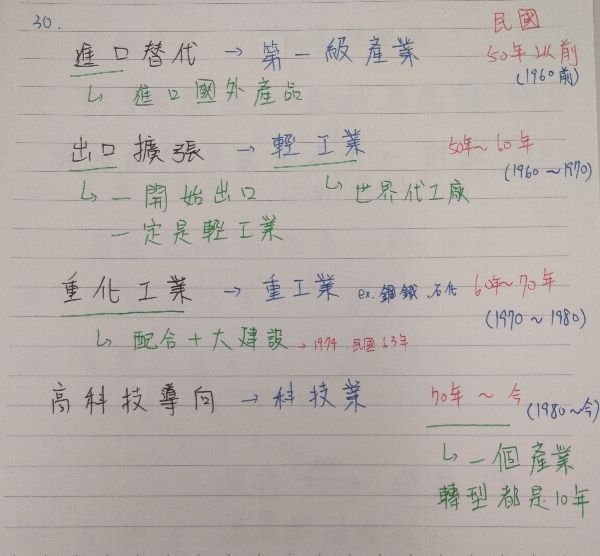 30.
民國
進口替代 → 第一級產業 50年以前
(1960前)
↳ 進口國外產品
出口擴張 → 輕工業 50年~60年
(1960~1970)
↳ 一開始出口 ↳ 世界代工廠
一定是輕工業
重化工業 → 重工業 ex.鋼鐵、石化 60年~70年
(1970~1980)
↳ 配合十大建設 → 1974、民國63年
高科技導向 → 科技業 70年~今 (1980~今)
↳ 一個產業
轉型都是10年